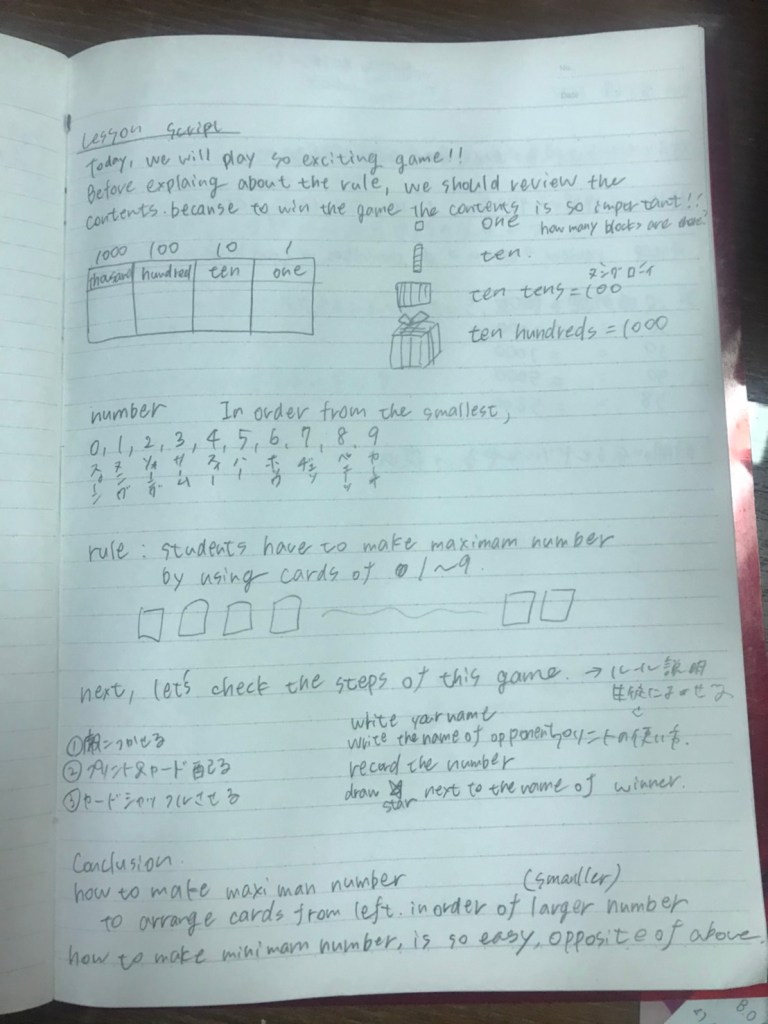 Lesson Script
Today, we will play so exciting game!!
Before explaing about the rule, we should review the
contents. because to win the game the contents is so important!!
one how many blocks are there?
1000 100 10 1
thousand hundred ten one
ten.
ten tens = 100
ten hundreds = 1000
number In order from the smallest,
0, 1, 2, 3, 4, 5, 6, 7, 8, 9
rule : students have to make maximam number
by using cards of 1~9.
next, let's check the steps of this game. → ルール説明
write your name
write the name of opponent プリントの使い方.
② プリント&カード配る
record the number
③ カードシャッフルさせる
draw star next to the name of winner.
Conclusion.
how to make maximan number (smanller)
to arrange cards from left. in order of larger number
how to make minimam number, is so easy, opposite of above.